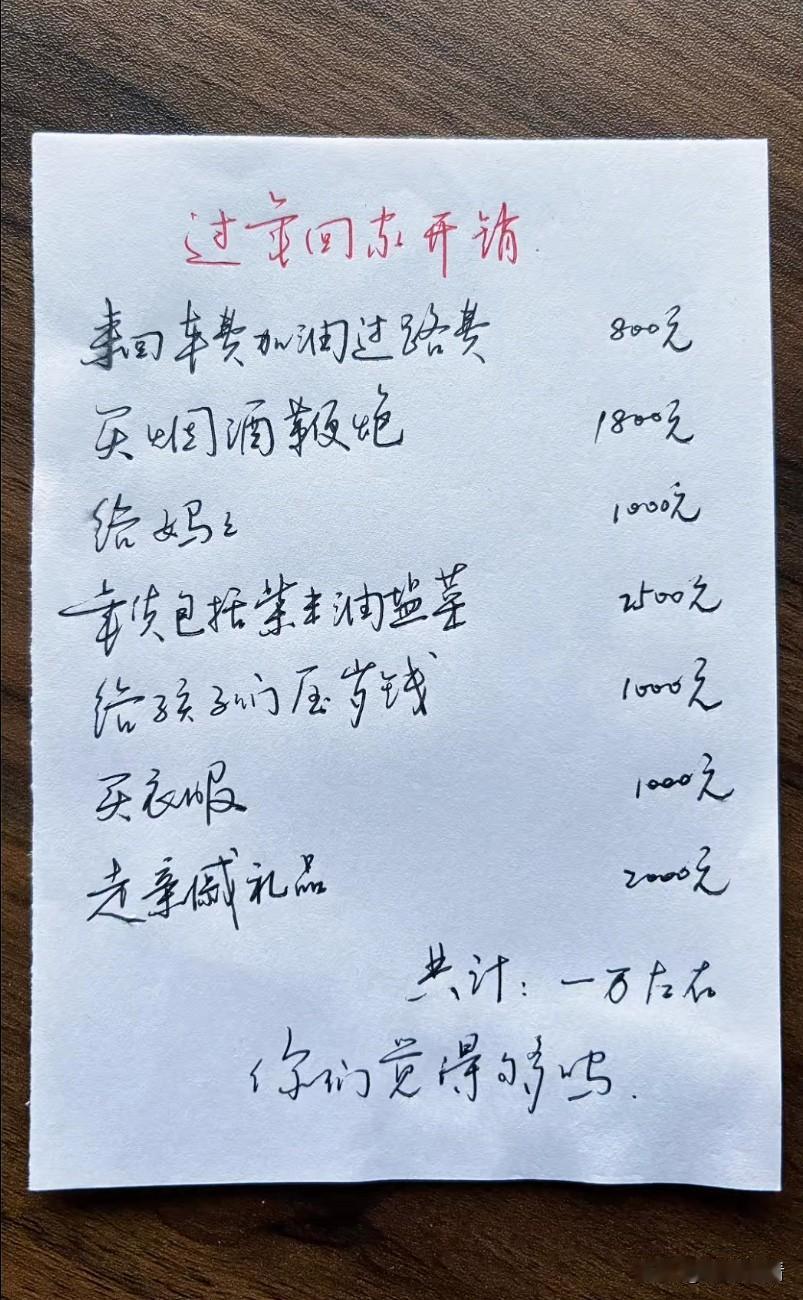 过年回家开销
来回车费加油过路费 800元
买烟酒鞭炮 1800元
给妈妈 1000元
年货包括柴米油盐菜 2500元
给孩子们压岁钱 1000元
买衣服 1000元
走亲戚礼品 2000元
共计：一万左右
你们觉得够吗.